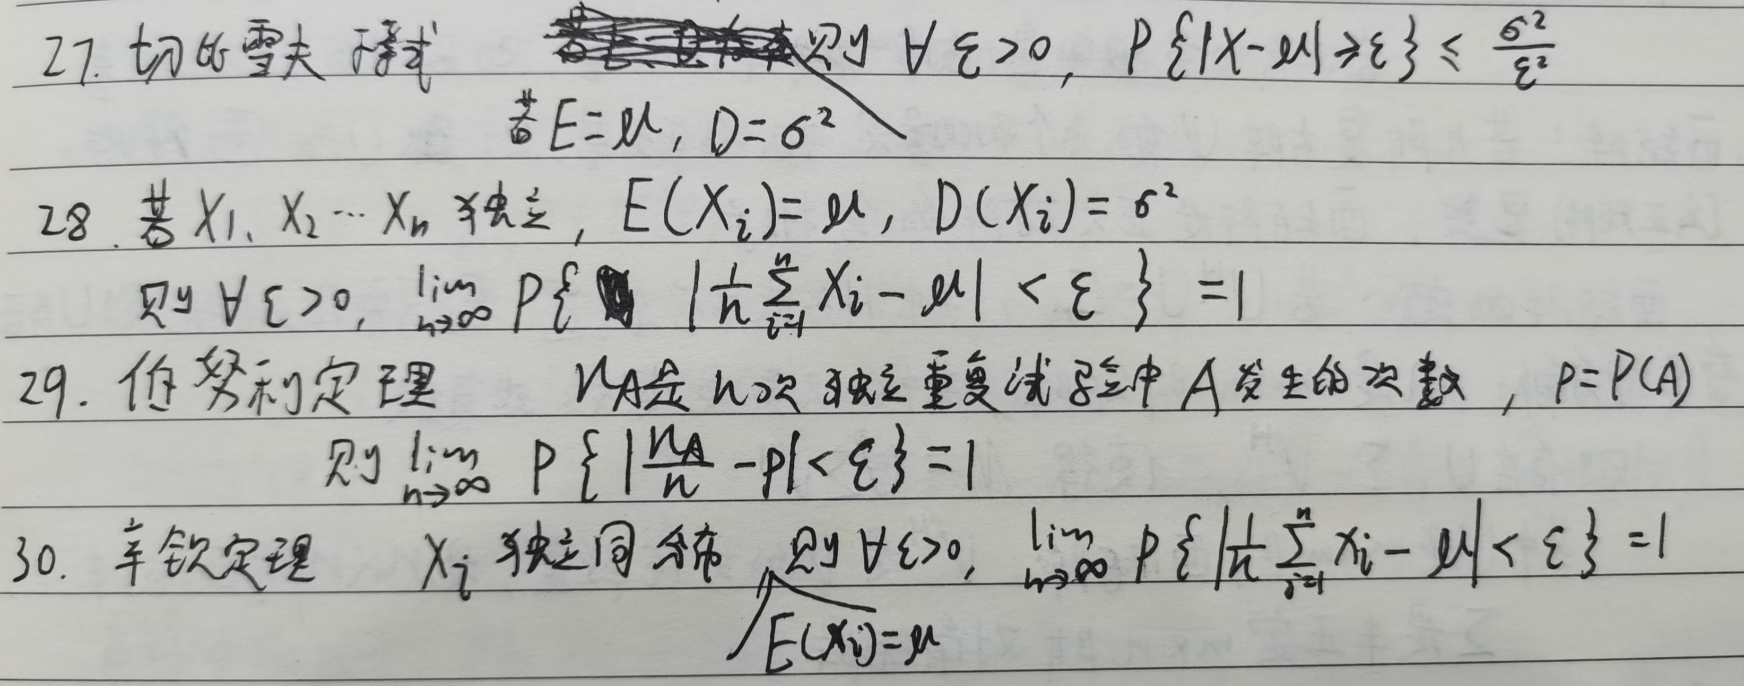 27. 切比雪夫不等式 若E=μ, D=σ² 则 ∀ε>0, P{|X-μ|≥ε} ≤ σ²/ε²
28. 若X₁、X₂…Xₙ独立, E(Xᵢ)=μ, D(Xᵢ)=σ²
则∀ε>0, lim n→∞ P{ |1/n ∑ i=1 n Xᵢ-μ| < ε } =1
29. 伯努利定理 n_A是n次独立重复试验中A发生的次数, p=P(A)
则 lim n→∞ P{|n_A/n -p|<ε}=1
30. 辛钦定理 Xᵢ 独立同分布, E(Xᵢ)=μ 则∀ε>0, lim n→∞ P{|1/n ∑ i=1 n Xᵢ-μ|<ε}=1